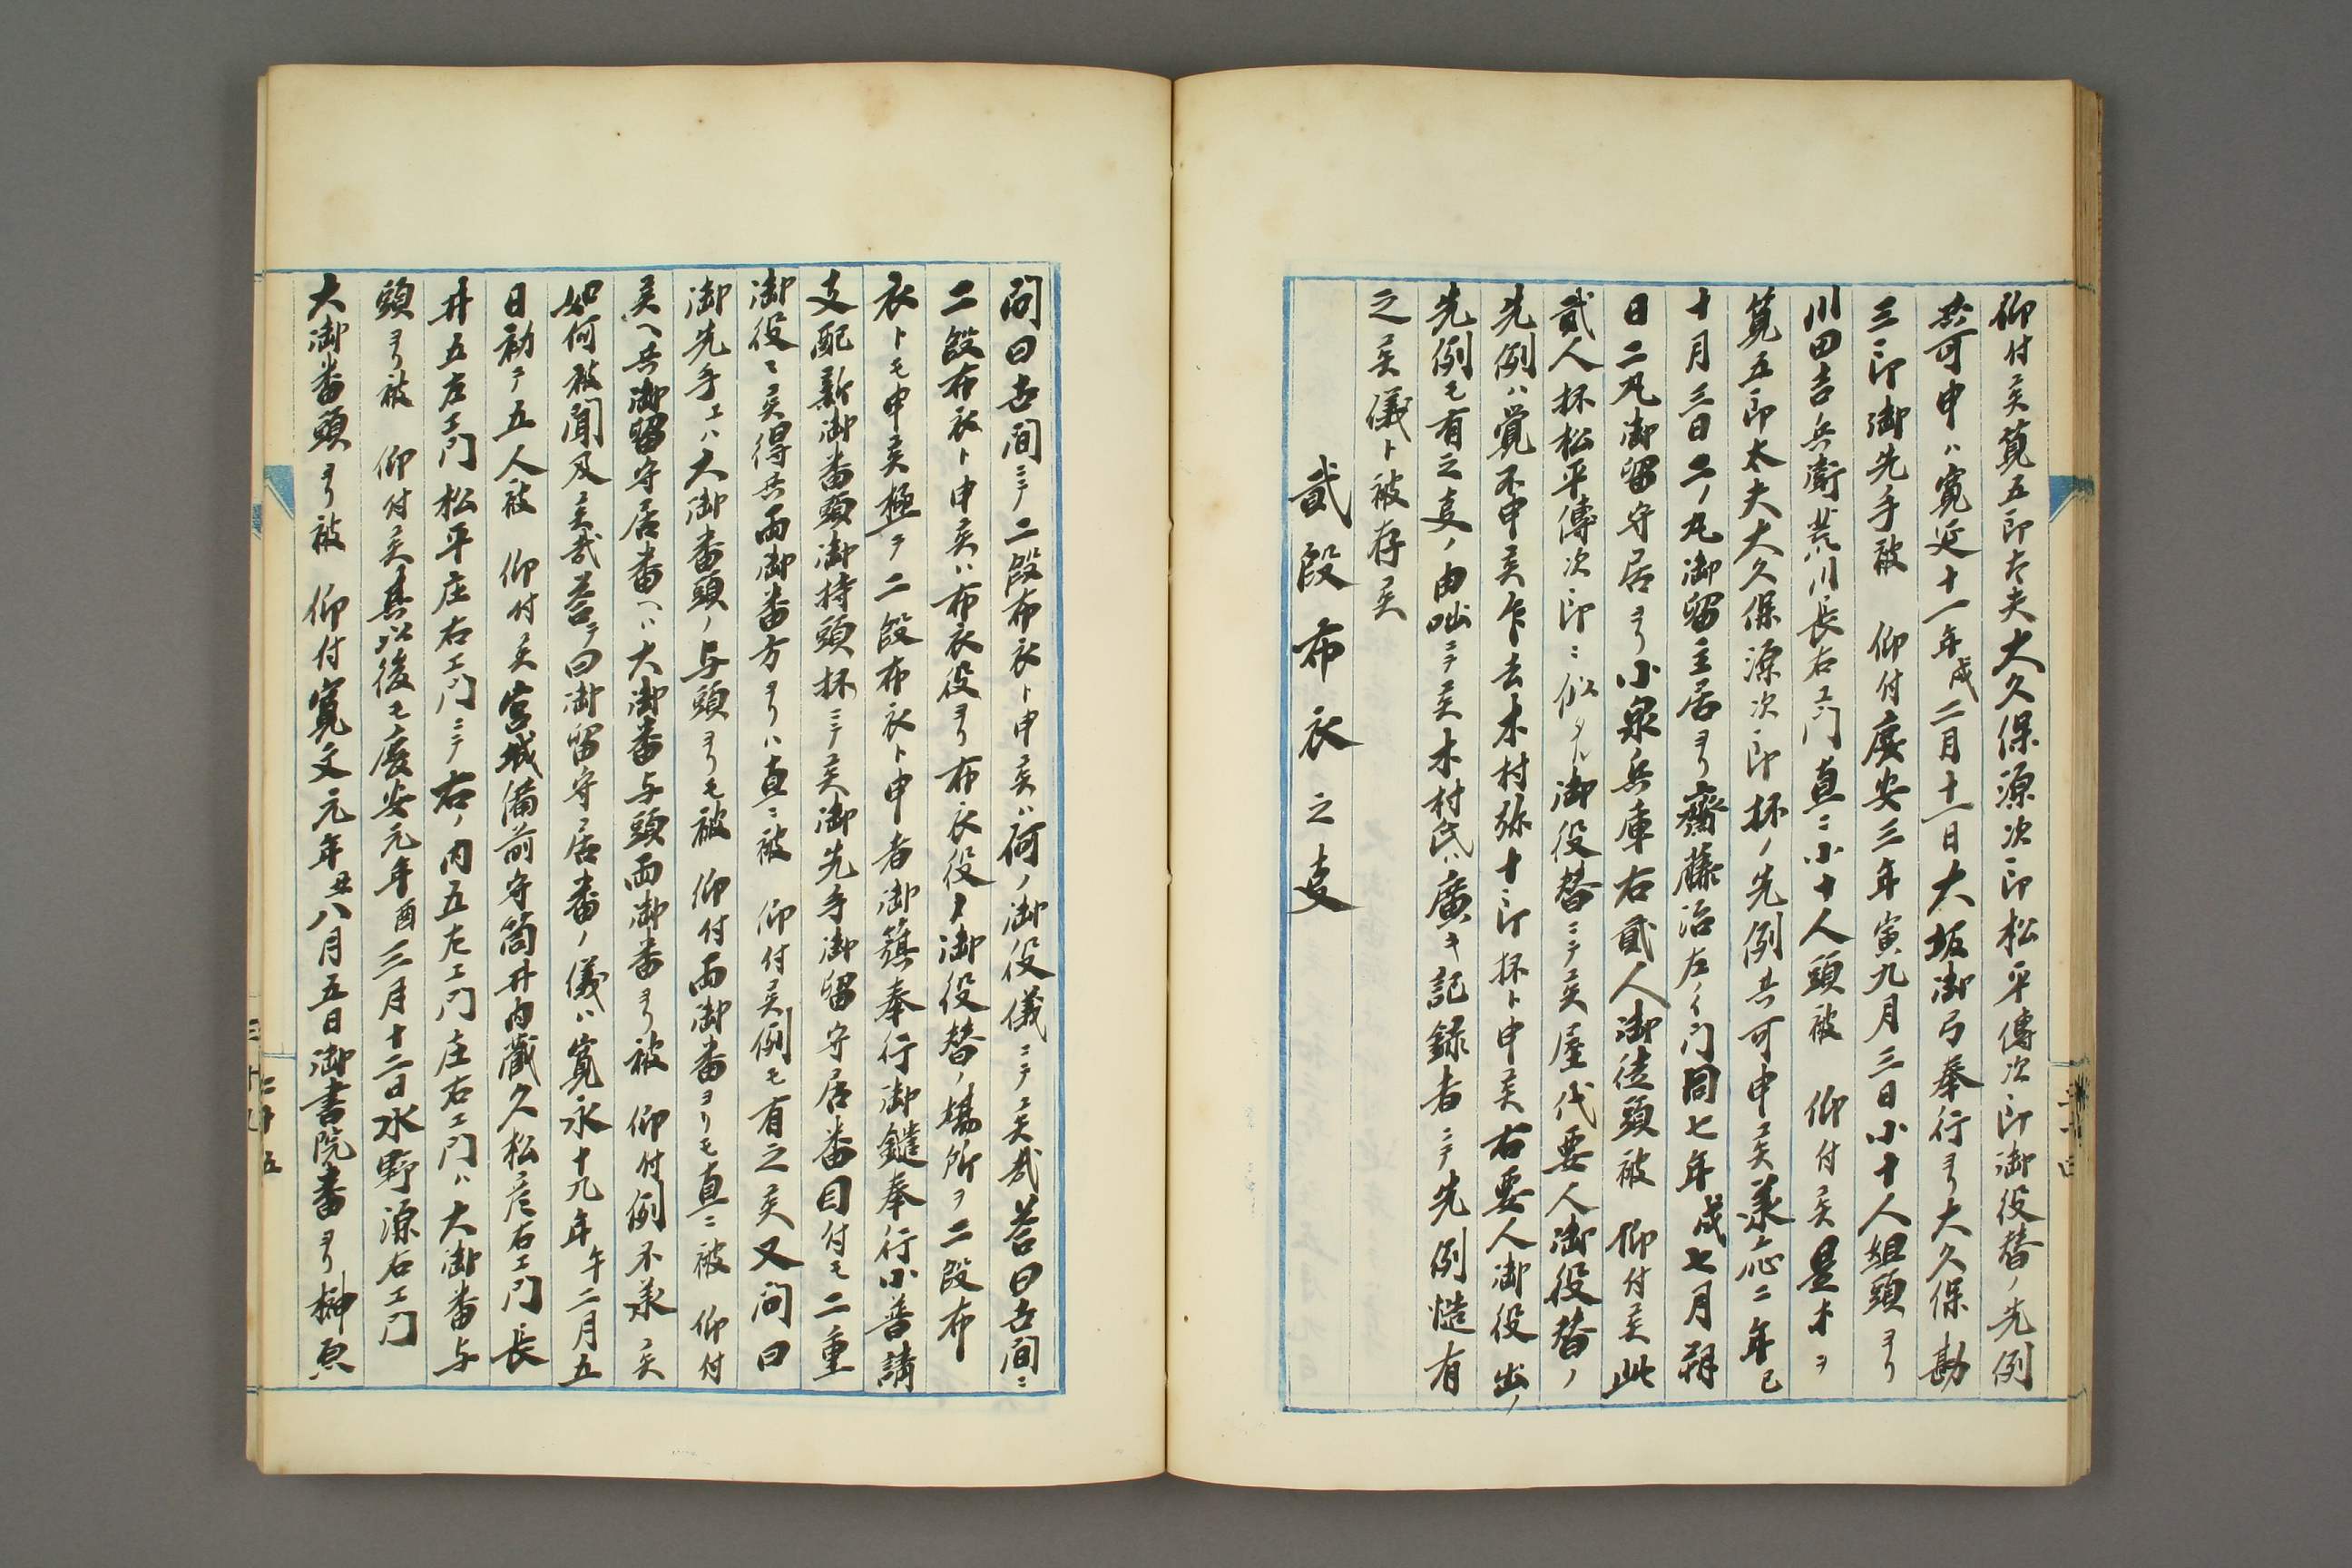 仰付候筧五郎太夫大久保源次郎松平傳次郎御役替ノ先例
共可申ハ寛延十一年戌二月十一日大坂御弓奉行ヨリ大久保勘
三郎御先手被　仰付慶安三年寅九月三日小十人組頭ヨリ
川田吉兵衛荒川長右エ門直ニ小十人頭被　仰付候是等ヲ
筧五郎太夫大久保源次郎抔ノ先例共可申候承応二年巳
十月三日二ノ丸御留主居ヨリ齋藤治左エ門同七年戌七月朔
日二丸御留守居ヨリ小泉兵庫右貳人御徒頭被　仰付候此
貳人抔松平傳次郎ニ似タル御役替ニテ候屋代要人御役替ノ
先例ハ覚不申候乍去木村弥十郎抔ト申候右要人御役出ノ
先例モ有之夏ノ由咄ニテ候木村氏ハ廣キ記録者ニテ先例慥有
之候儀ト被存候
貳段布衣之夏
問曰世間ニテ二段布衣ト申候ハ何ノ御役儀ニテ候哉答曰世間ニ
二段布衣ト申候ハ布衣役ヨリ布衣役ヱ御役替ノ場所ヲ二段布
衣トモ申候極ヲ二段布衣ト申者御籏奉行御鑓奉行小普請
支配新御番頭御持頭抔ニテ候御先手御留守居番目付モ二重
御役ニ候得共両御番方ヨリハ直ニ被　仰付候例モ有之候又問曰
御先手エハ大御番頭ノ与頭ヨリモ被　仰付両御番ヨリモ直ニ被　仰付
候ヘ共御留守居番ヘハ大御番与頭両御番ヨリ被　仰付例不承候
如何被聞及候哉答テ曰御留守居番ノ儀ハ寛永十九年午二月五
日初テ五人被　仰付候宮城備前守筒井内藏久松彦右エ門長
井五左エ門松平庄右エ門ニテ右ノ内五左エ門庄右エ門ハ大御番与
頭ヨリ被　仰付候其以後モ慶安元年酉三月十二日水野源右エ門
大御番頭ヨリ被　仰付寛文元年丑八月五日御書院番ヨリ榊原
二十五